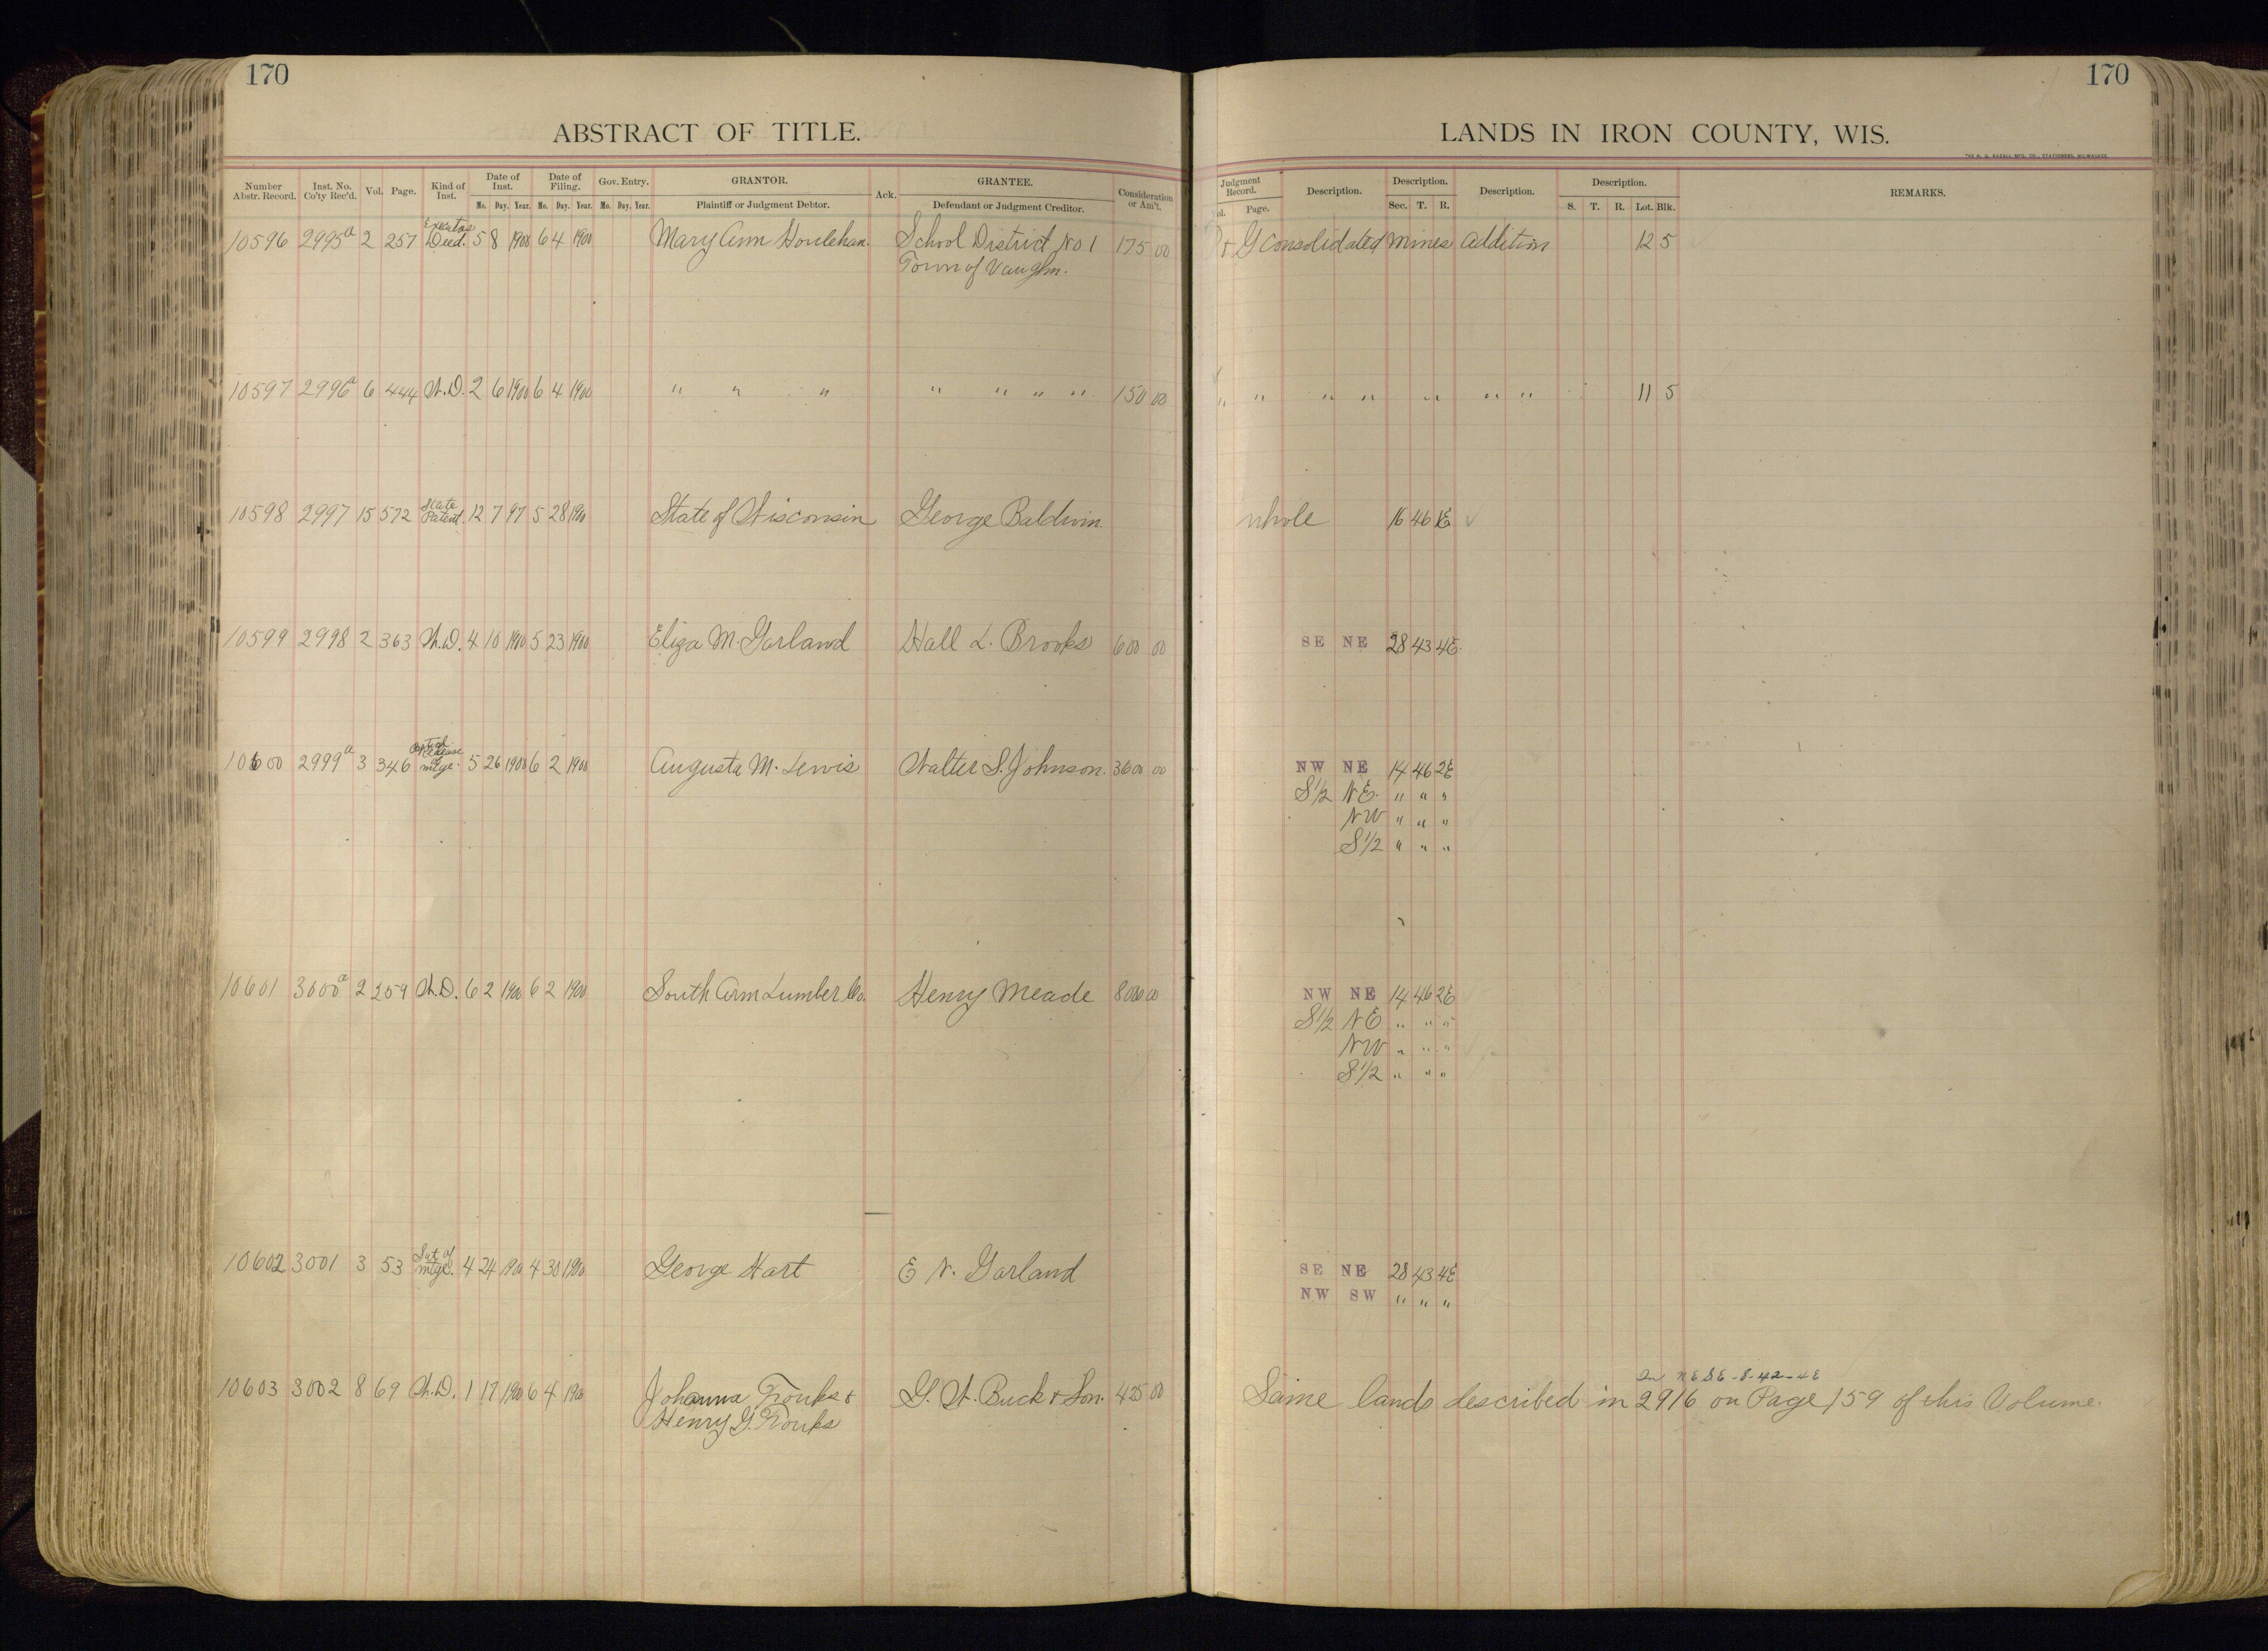 170
170
ABSTRACT OF TITLE.
LANDS IN IRON COUNTY, WIS.
Number Abstr. Record. Inst. No. Co'ty Rec'd. Vol. Page. Kind of Inst. Date of Inst. Mo. Day. Year. Date of Filing. Mo. Day. Year. Gov. Entry. Mo. Day. Year. GRANTOR. Plaintiff or Judgment Debtor. Ack. GRANTEE. Defendant or Judgment Creditor. Consideration or Am't.
Judgment Record. Page. Description. Description. Sec. T. R. Description. Description. S. T. R. Lot. Blk. REMARKS.
10596 2995a 2 257 Executors Deed. 5 8 1900 6 4 1900 Mary Ann Houlehan. School District No 1 175 00 & G Consolidated Mines Addition 12 5
Town of Vaughn.
10597 2996a 6 444 W.D. 2 6 1900 6 4 1900 " " " " " " " 150 00 " " " " " " " 11 5
10598 2997 15 572 State Patent. 12 7 97 5 28 1900 State of Wisconsin George Baldwin whole 16 46 1E
10599 2998 2 363 W.D. 4 10 1900 5 23 1900 Eliza M. Garland Hall L. Brooks 600 00 SE NE 28 43 4E.
10600 2999a 3 346 Release mtge. 5 26 1900 6 2 1900 Augusta M. Lewis Walter S. Johnson. 3600 00 NW NE 14 46 2E
S1/2 NE. " " "
NW " " "
S1/2 " " "
10601 3000a 2 259 W.D. 6 2 1900 6 2 1900 South Arm Lumber Co. Henry Meade 8000 00 NW NE 14 46 2E
S1/2 NE " " "
NW " " "
S1/2 " " "
10602 3001 3 53 Sat of mtge. 4 24 1900 4 30 1900 George Hart E N. Garland SE NE 28 43 4E
NW SW " " "
In NE SE - 8-42-4E
10603 3002 8 69 W.D. 1 17 1900 6 4 1900 Johanna & G. W. Buck & Son. 425 00 Same lands described in 2916 on Page 159 of this Volume.
Henry G.